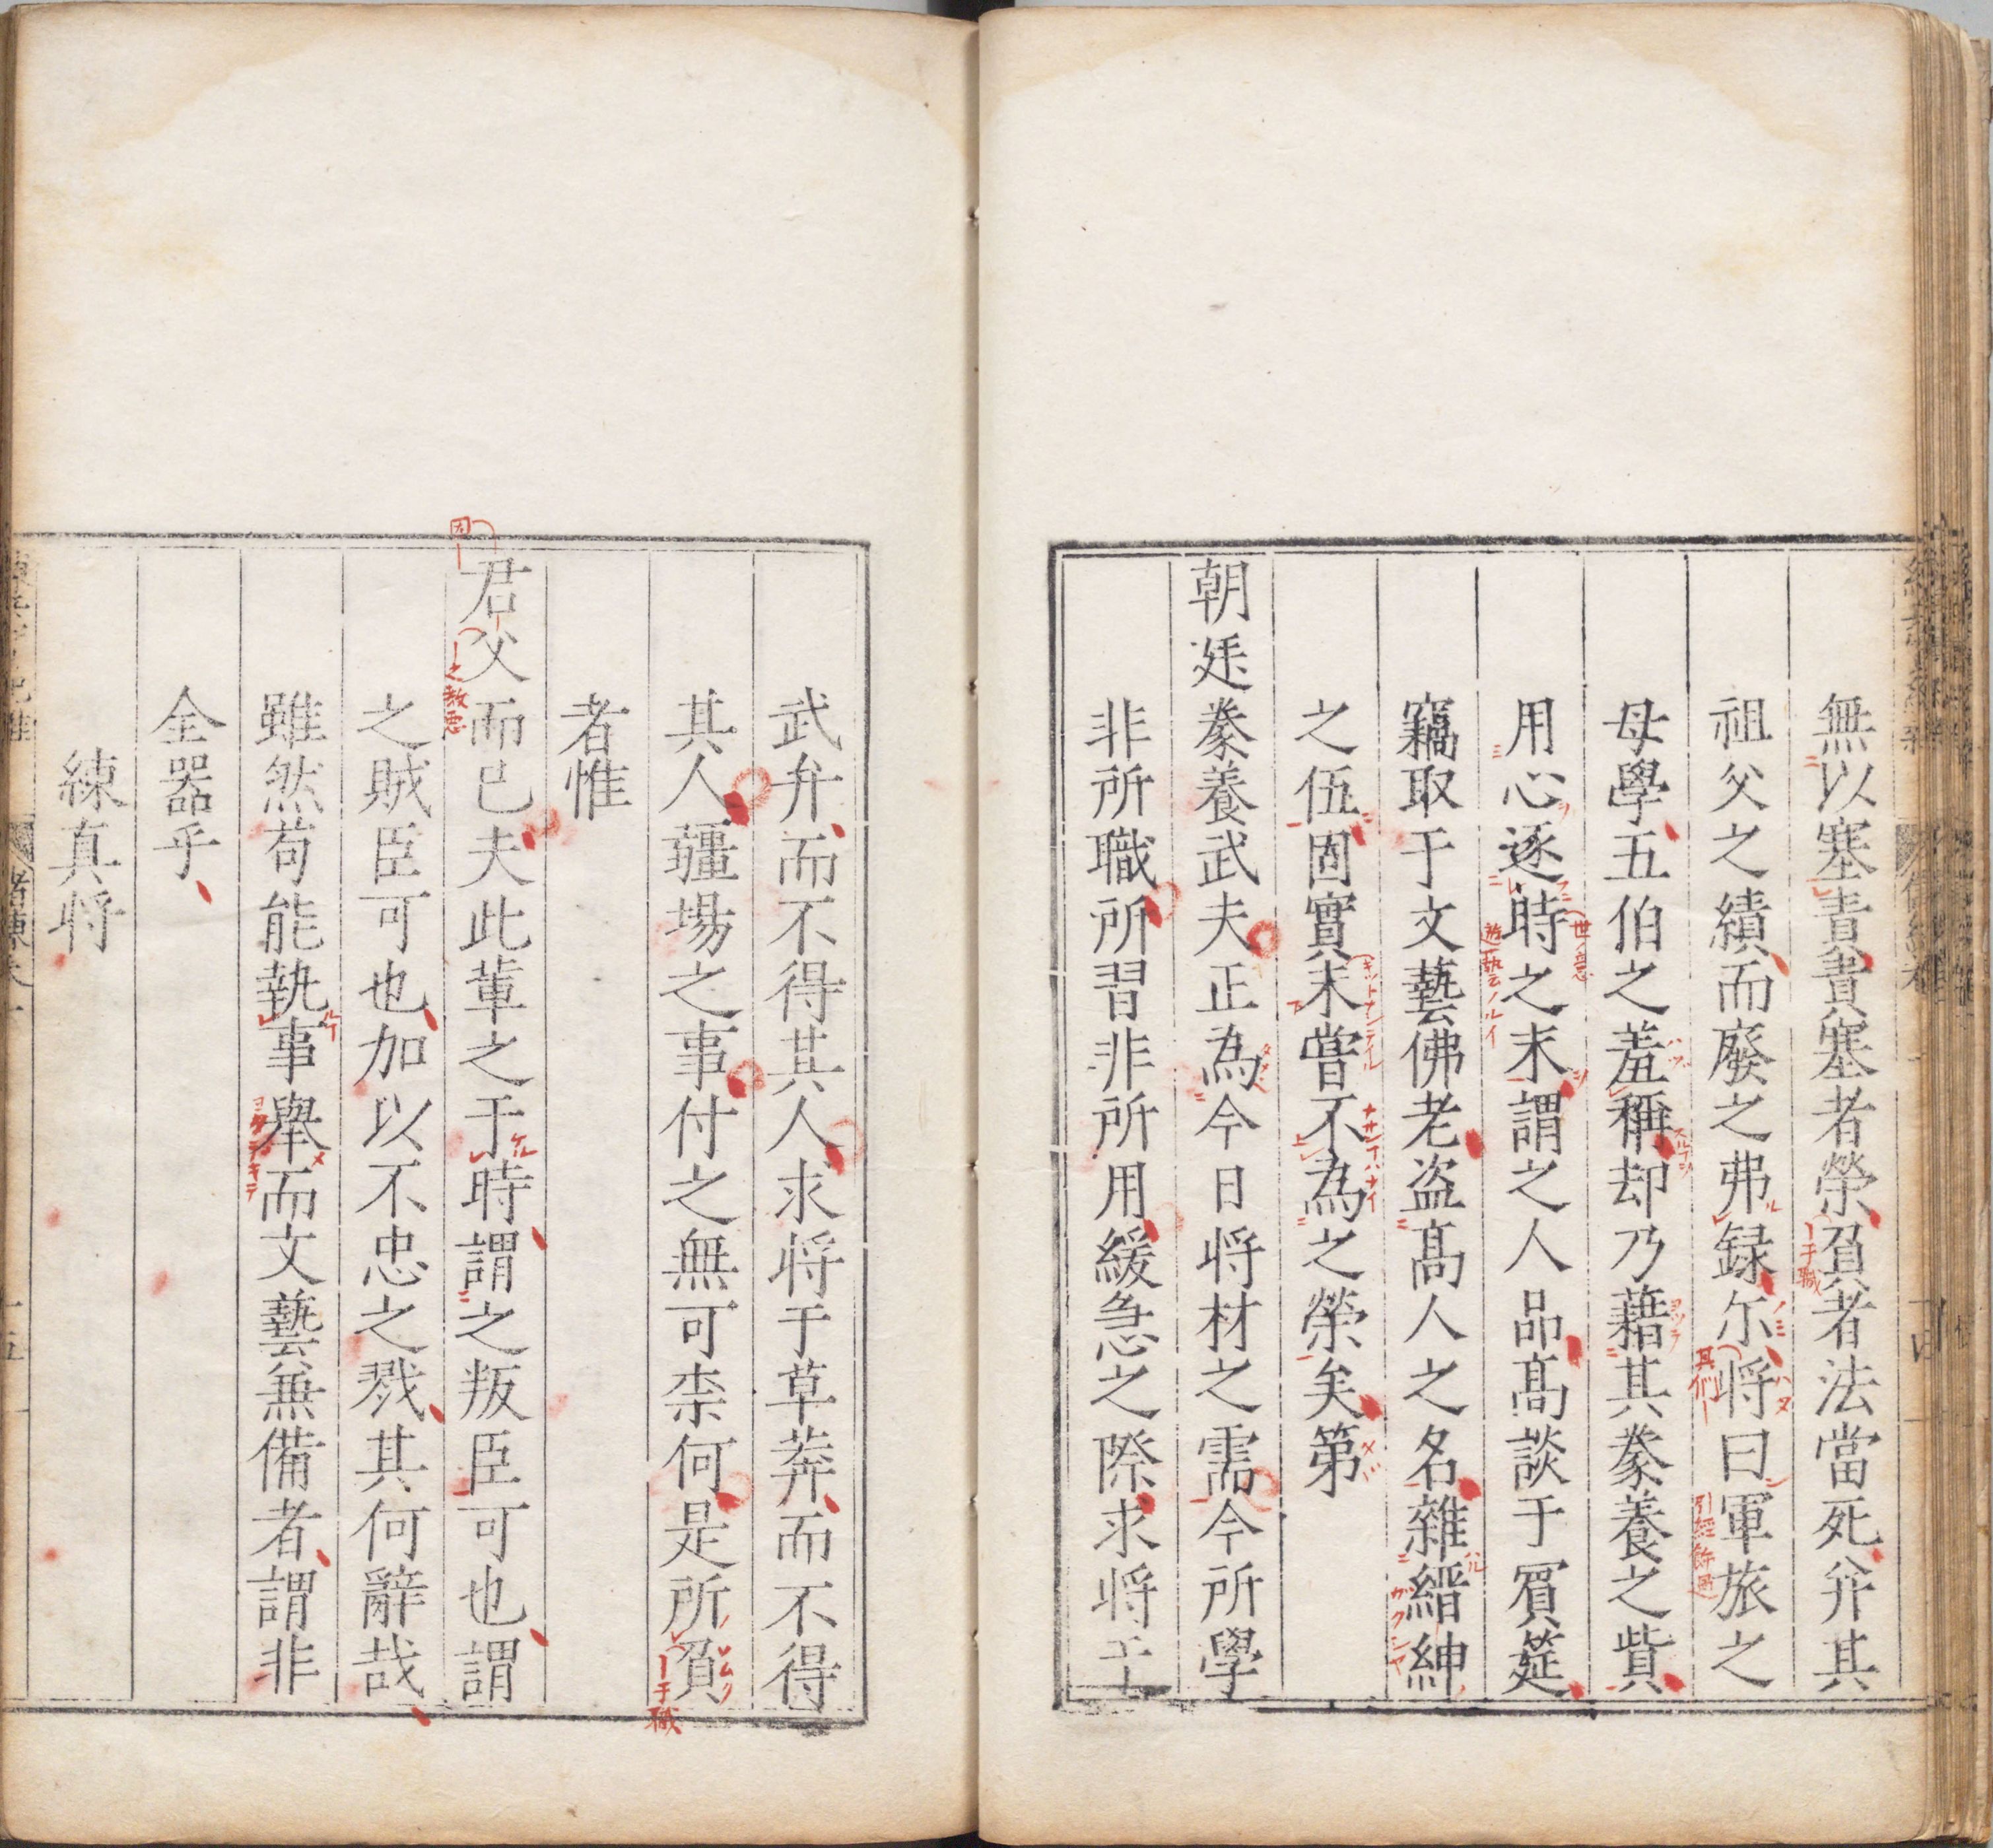 無以塞責責塞者榮負者法當死弁其
祖父之績而廢之弗録尓將曰軍旅之
母學五伯之羞稱却乃藉其豢養之貲
用心逐時之末謂之人品髙談于賔筵
竊取于文藝佛老盗髙人之名雜縉紳
之伍固實未嘗不為之榮矣第
朝廷豢養武夫正為今日将材之需今所學
非所職所習非所用緩急之際求将于
武弁而不得其人求将于草莽而不得
其人疆場之事付之無可柰何是所負
者惟
君父而已夫此輩之于時謂之叛臣可也謂
之賊臣可也加以不忠之戮其何辭哉
雖然苟能執事舉而文藝兼備者謂非
全器乎
練真将